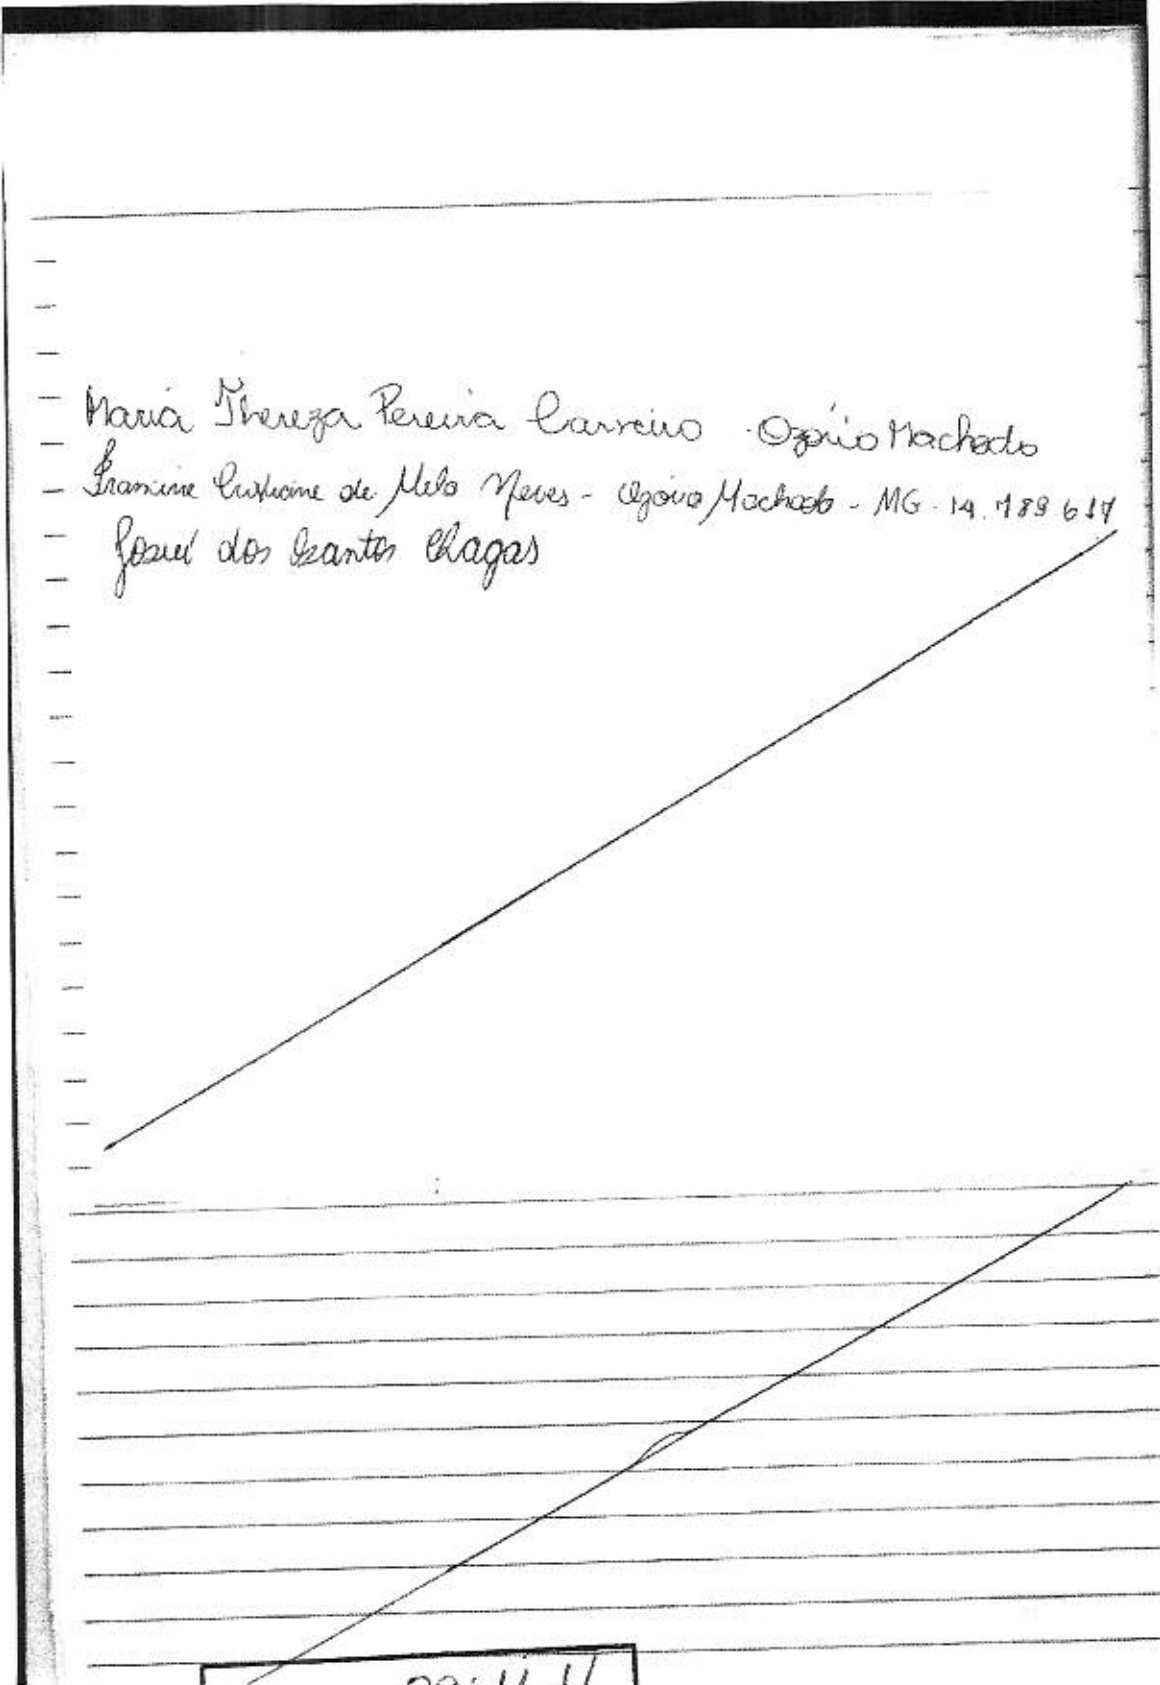 Maria Thereza Pereira Carneiro Ozório Machado
Francine Cristiane de Melo Neves - Ozório Machado - MG - 14.789.617
Josué dos Santos Chagas